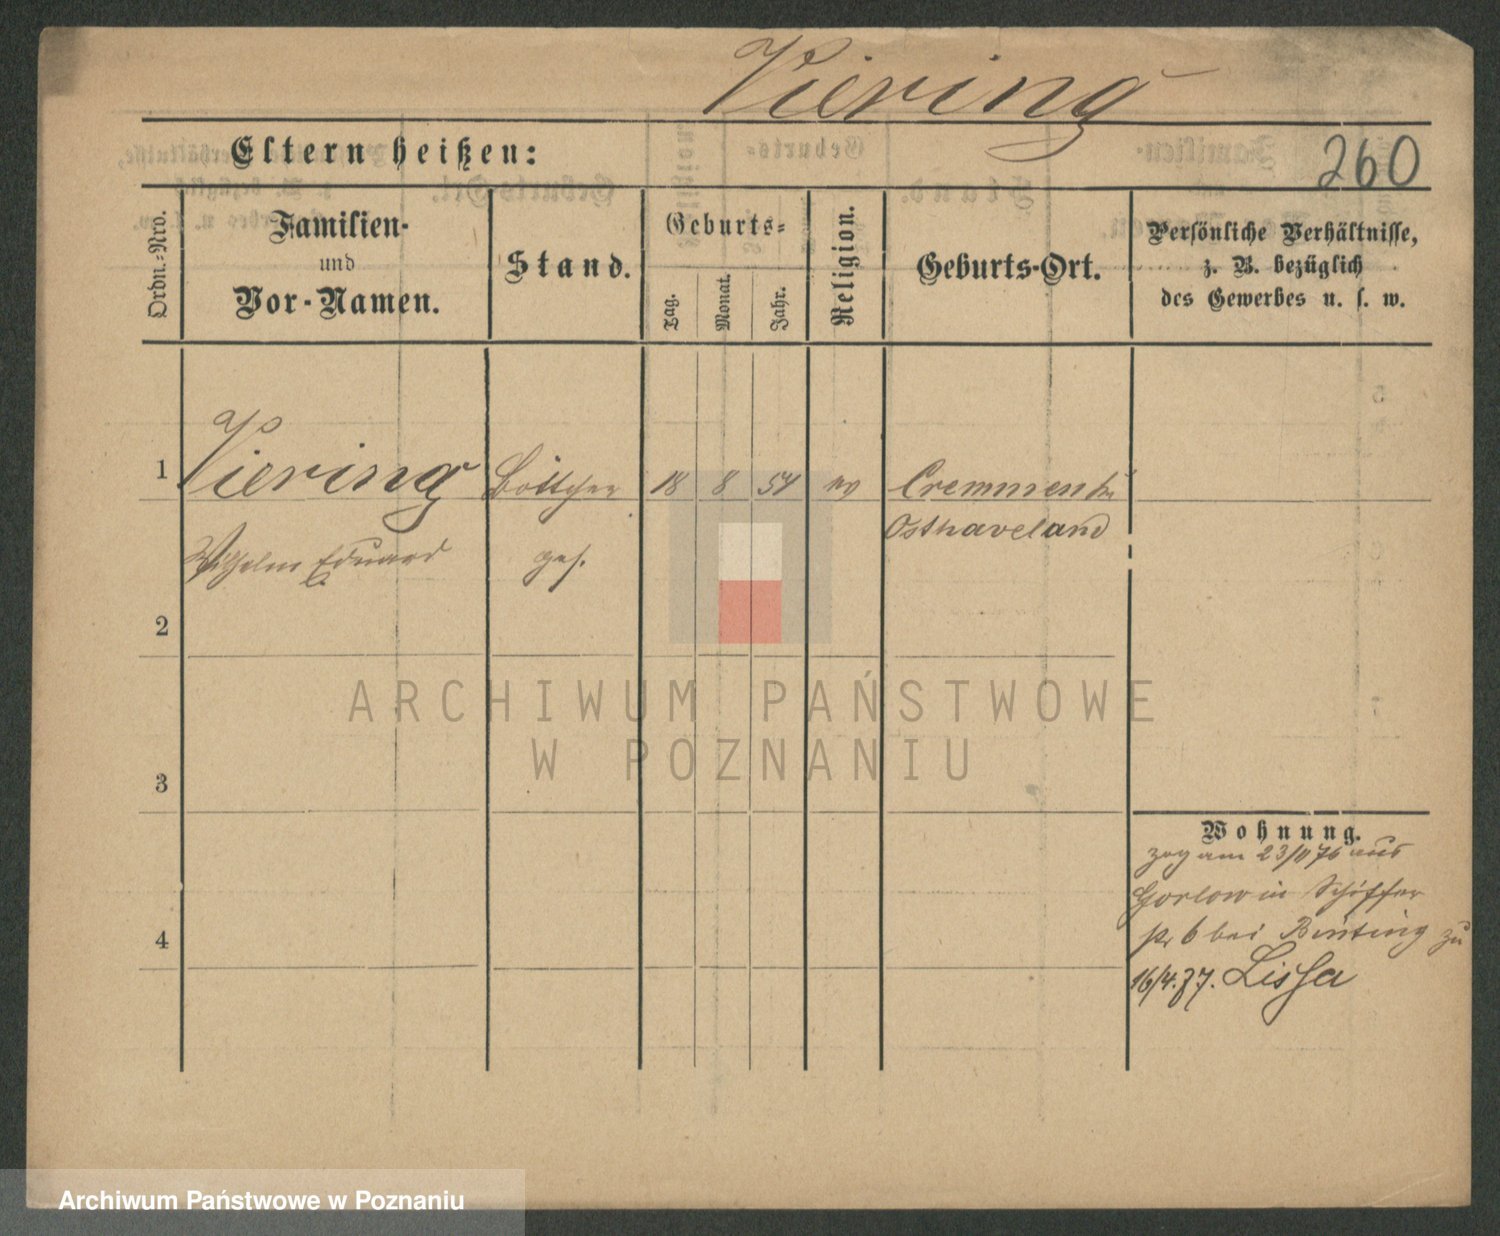 Viering
Eltern heißen:
260
Ordn.-Nro.
Familien-
und
Vor-Namen.
Stand.
Geburts-
Tag.
Monat.
Jahr.
Religion.
Geburts-Ort.
Persönliche Verhältnisse,
z. B. bezüglich
des Gewerbes u. s. w.
1 Viering Böttcher 18 8 54 ev Cremmen
Osthaveland
Wilhelm Eduard ges.
2
3
4
Wohnung.
zog am 23/ 76 aus
in
6 bei Bünting zu
16/4.77. Lissa
ARCHIWUM PAŃSTWOWE
W POZNANIU
Archiwum Państwowe w Poznaniu